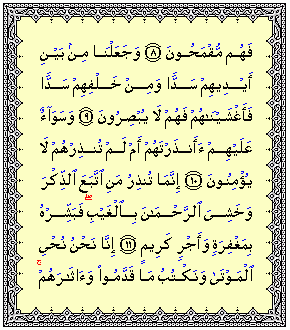 فَهُم مُّقْمَحُونَ ٨ وَجَعَلْنَا مِنۢ بَيْنِ
أَيْدِيهِمْ سَدًّا وَمِنْ خَلْفِهِمْ سَدًّا
فَأَغْشَيْنَٰهُمْ فَهُمْ لَا يُبْصِرُونَ ٩ وَسَوَآءٌ
عَلَيْهِمْ ءَأَنذَرْتَهُمْ أَمْ لَمْ تُنذِرْهُمْ لَا
يُؤْمِنُونَ ١٠ إِنَّمَا تُنذِرُ مَنِ ٱتَّبَعَ ٱلذِّكْرَ
وَخَشِىَ ٱلرَّحْمَٰنَ بِٱلْغَيْبِ ۖ فَبَشِّرْهُ
بِمَغْفِرَةٍ وَأَجْرٍ كَرِيمٍ ١١ إِنَّا نَحْنُ نُحْىِ
ٱلْمَوْتَىٰ وَنَكْتُبُ مَا قَدَّمُوا۟ وَءَاثَٰرَهُمْ ۚ